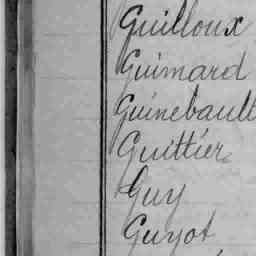 Guilloux
Guimard
Guinebault
Guittier
Guy
Guyot